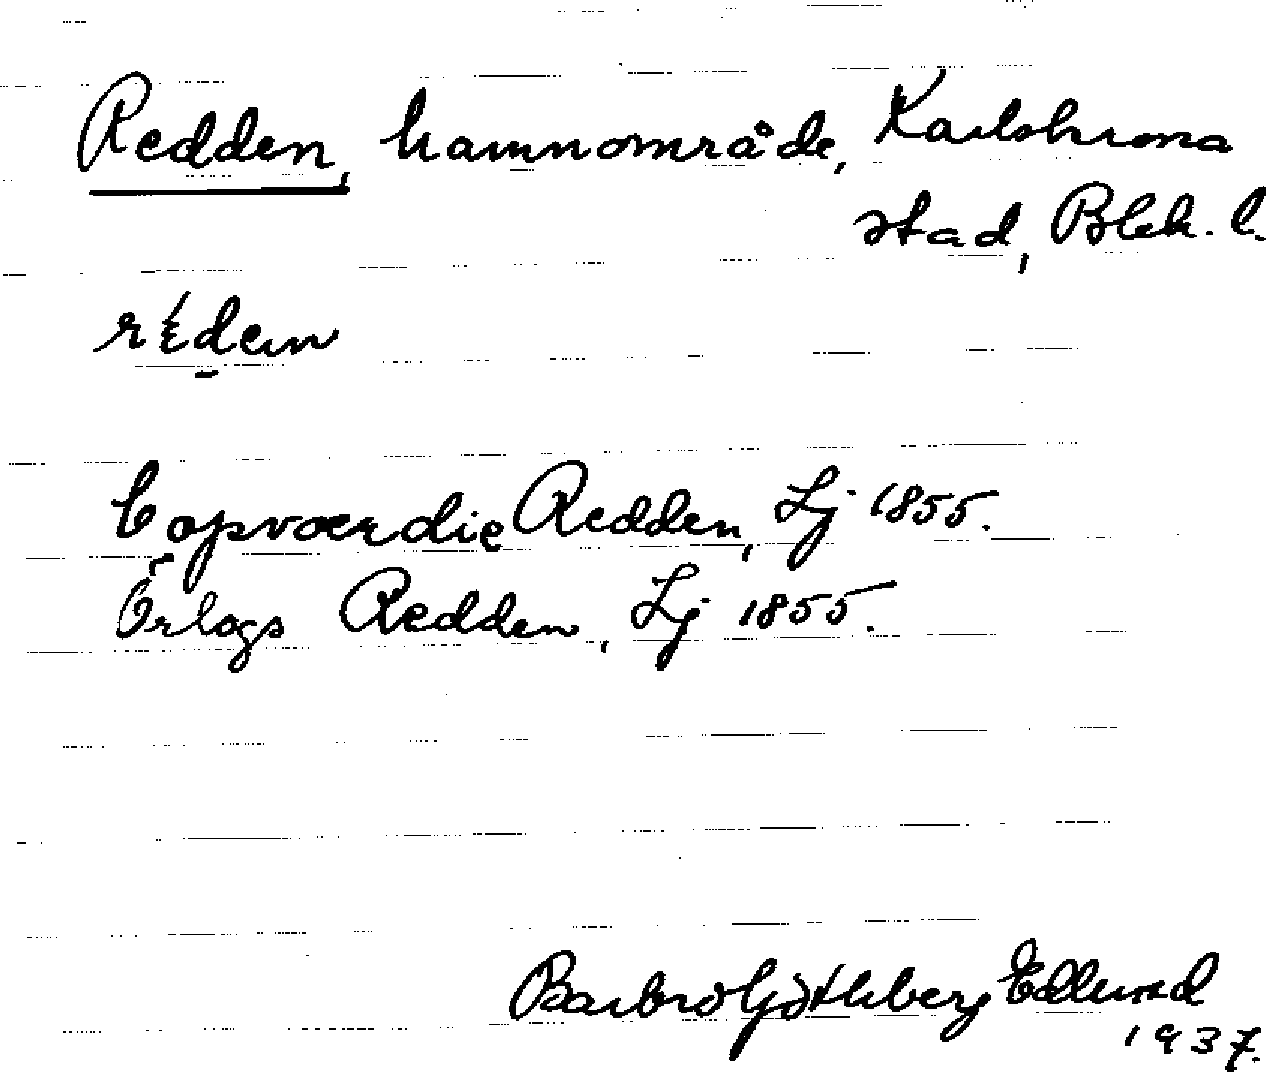 Redden, hamnområde, Karlskrona
stad, Blek. l.
Copvoerdie Redden, Lj 1855.
Örlogs Redden, Lj 1855.
Barbro Göthberg Edlund
1937.